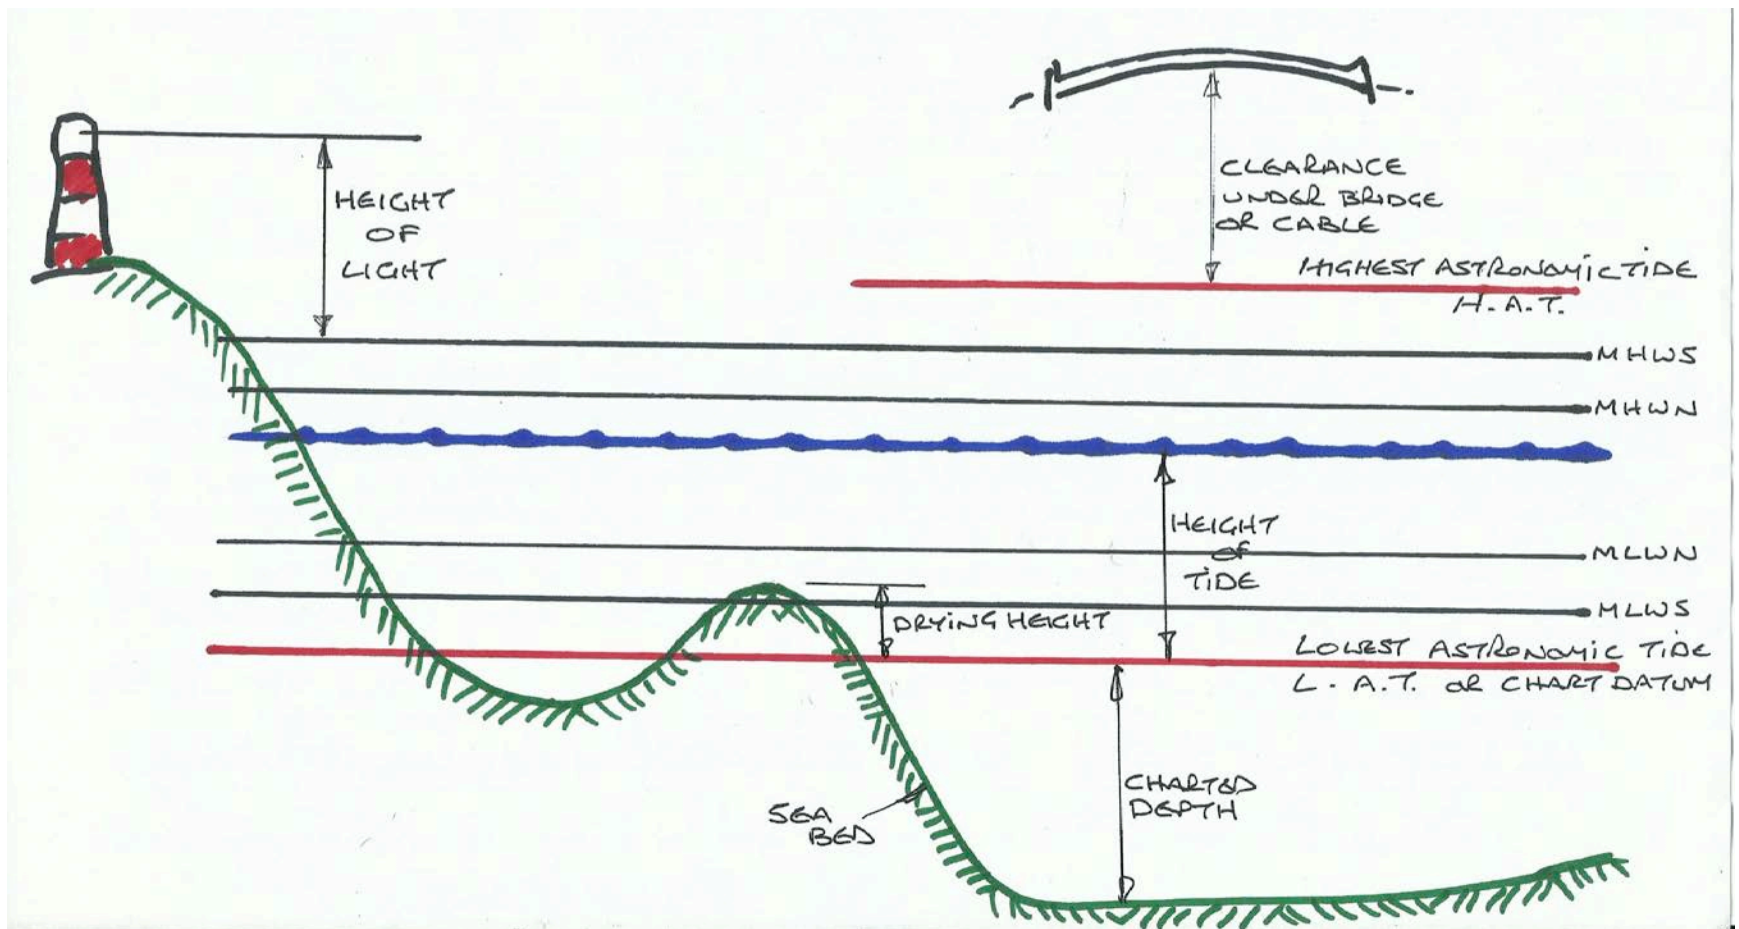 HEIGHT
OF
LIGHT
CLEARANCE
UNDER BRIDGE
OR CABLE
HIGHEST ASTRONOMIC TIDE
H.A.T.
MHWS
MHWN
HEIGHT
OF
TIDE
MLWN
MLWS
DRYING HEIGHT
LOWEST ASTRONOMIC TIDE
L.A.T. OR CHART DATUM
CHARTED
DEPTH
SEA
BED